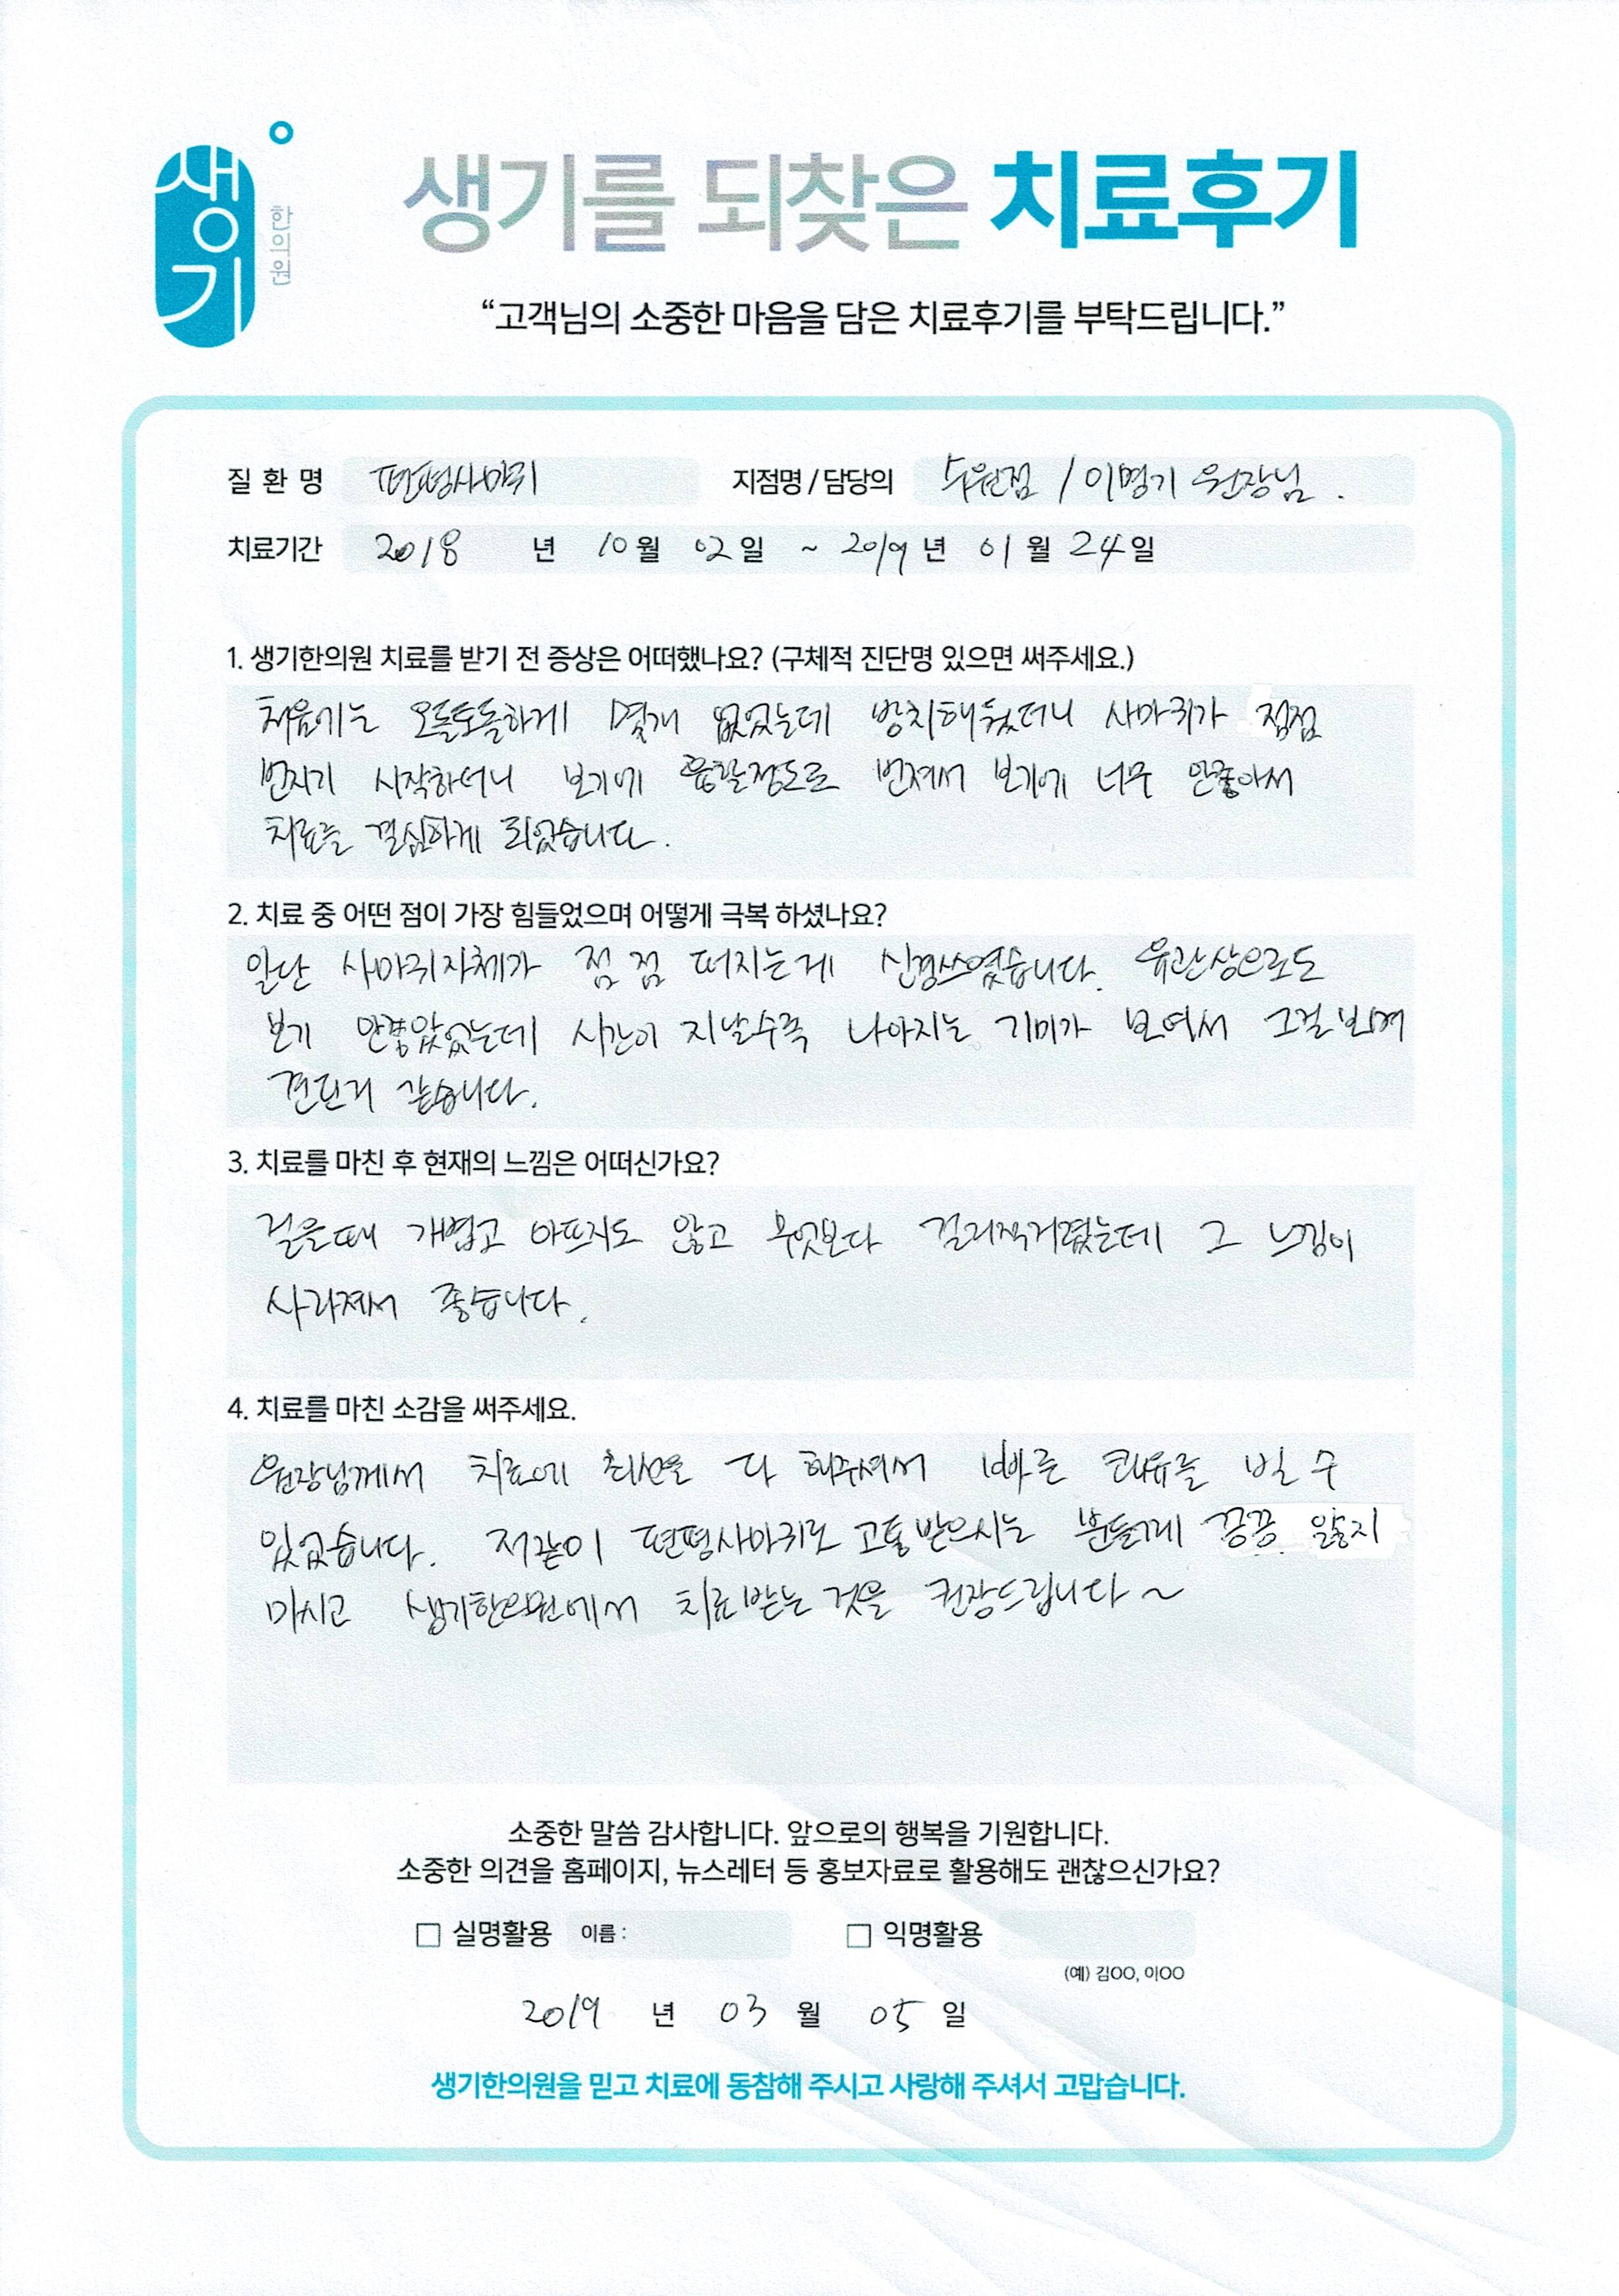 생기 한의원
생기를 되찾은 치료후기
“고객님의 소중한 마음을 담은 치료후기를 부탁드립니다.”
질 환 명 편평사마귀 지점명 / 담당의 수원점 / 이명기 원장님 .
치료기간 2018 년 10 월 02 일 ~ 2019 년 01 월 24 일
1. 생기한의원 치료를 받기 전 증상은 어떠했나요? (구체적 진단명 있으면 써주세요.)
처음에는 오돌토돌하게 몇개 없었는데 방치해뒀더니 사마귀가 점점
번지기 시작하더니 보기에 흉할정도로 번져서 보기에 너무 안좋아서
치료를 결심하게 되었습니다.
2. 치료 중 어떤 점이 가장 힘들었으며 어떻게 극복 하셨나요?
일단 사마귀자체가 점점 퍼지는게 신경쓰였습니다. 육관상으로도
보기 안좋았었는데 시간이 지날수록 나아지는 기미가 보여서 그걸 보며
견딘거 같습니다.
3. 치료를 마친 후 현재의 느낌은 어떠신가요?
걸을때 개볍고 아프지도 않고 무엇보다 걸리적거렸는데 그 느낌이
사라져서 좋습니다.
4. 치료를 마친 소감을 써주세요.
원장님께서 치료에 최선을 다 해주셔서 빠른 쾌유를 빌 수
있었습니다. 저같이 편평사마귀로 고통받으시는 분들께 끙끙 앓지
마시고 생기한의원에서 치료받는 것을 권장드립니다~
소중한 말씀 감사합니다. 앞으로의 행복을 기원합니다.
소중한 의견을 홈페이지, 뉴스레터 등 홍보자료로 활용해도 괜찮으신가요?
□ 실명활용 이름 : □ 익명활용
(예) 김OO, 이OO
2019 년 03 월 05 일
생기한의원을 믿고 치료에 동참해 주시고 사랑해 주셔서 고맙습니다.